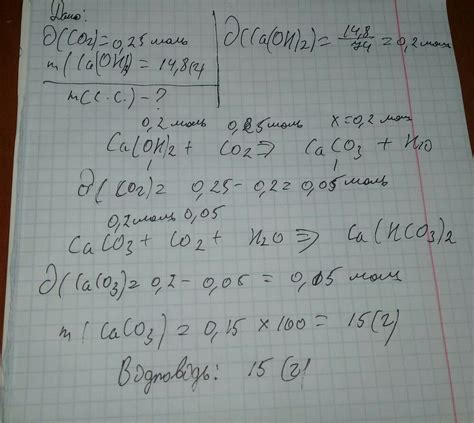 Дано:
ϑ(CO2)=0,25 моль
m(Ca(OH)2 = 14,8(г)
m(C.C.) - ?
ϑ(Ca(OH)2) = 14,8/74 = 0,2 моль
0,2 моль 0,25 моль x=0,2 моль
Ca(OH)2 + CO2 => CaCO3 + H2O
ϑ(CO2) = 0,25 - 0,2 = 0,05 моль
0,2 моль 0,05
CaCO3 + CO2 + H2O => Ca(HCO3)2
ϑ(CaCO3) = 0,2 - 0,05 = 0,15 моль
m(CaCO3) = 0,15 × 100 = 15(г)
Відповідь: 15 (г)